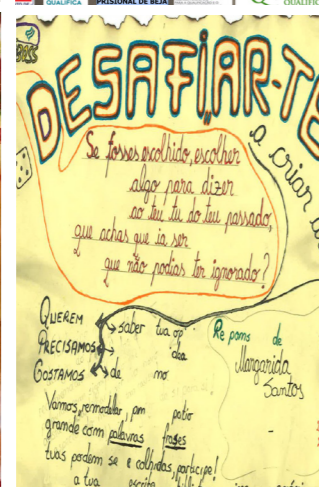 QUALIFICA
PRISIONAL DE BEJA
QUALIFIC
DESAFIAR-TE
a criar
Se fosses escolhido, escolher
algo para dizer
ao teu tu do teu passado,
que achas que ia ser
que não podias ter ignorado?
QUEREM
PRECISAMOS
GOSTAMOS
saber tua op
dea
de mo
Re pons de
Margarida
Santos
Vamos, remodelar, pátio
grande com palavras frases
tuas podem se e colhidas, participe!
a tua escrita